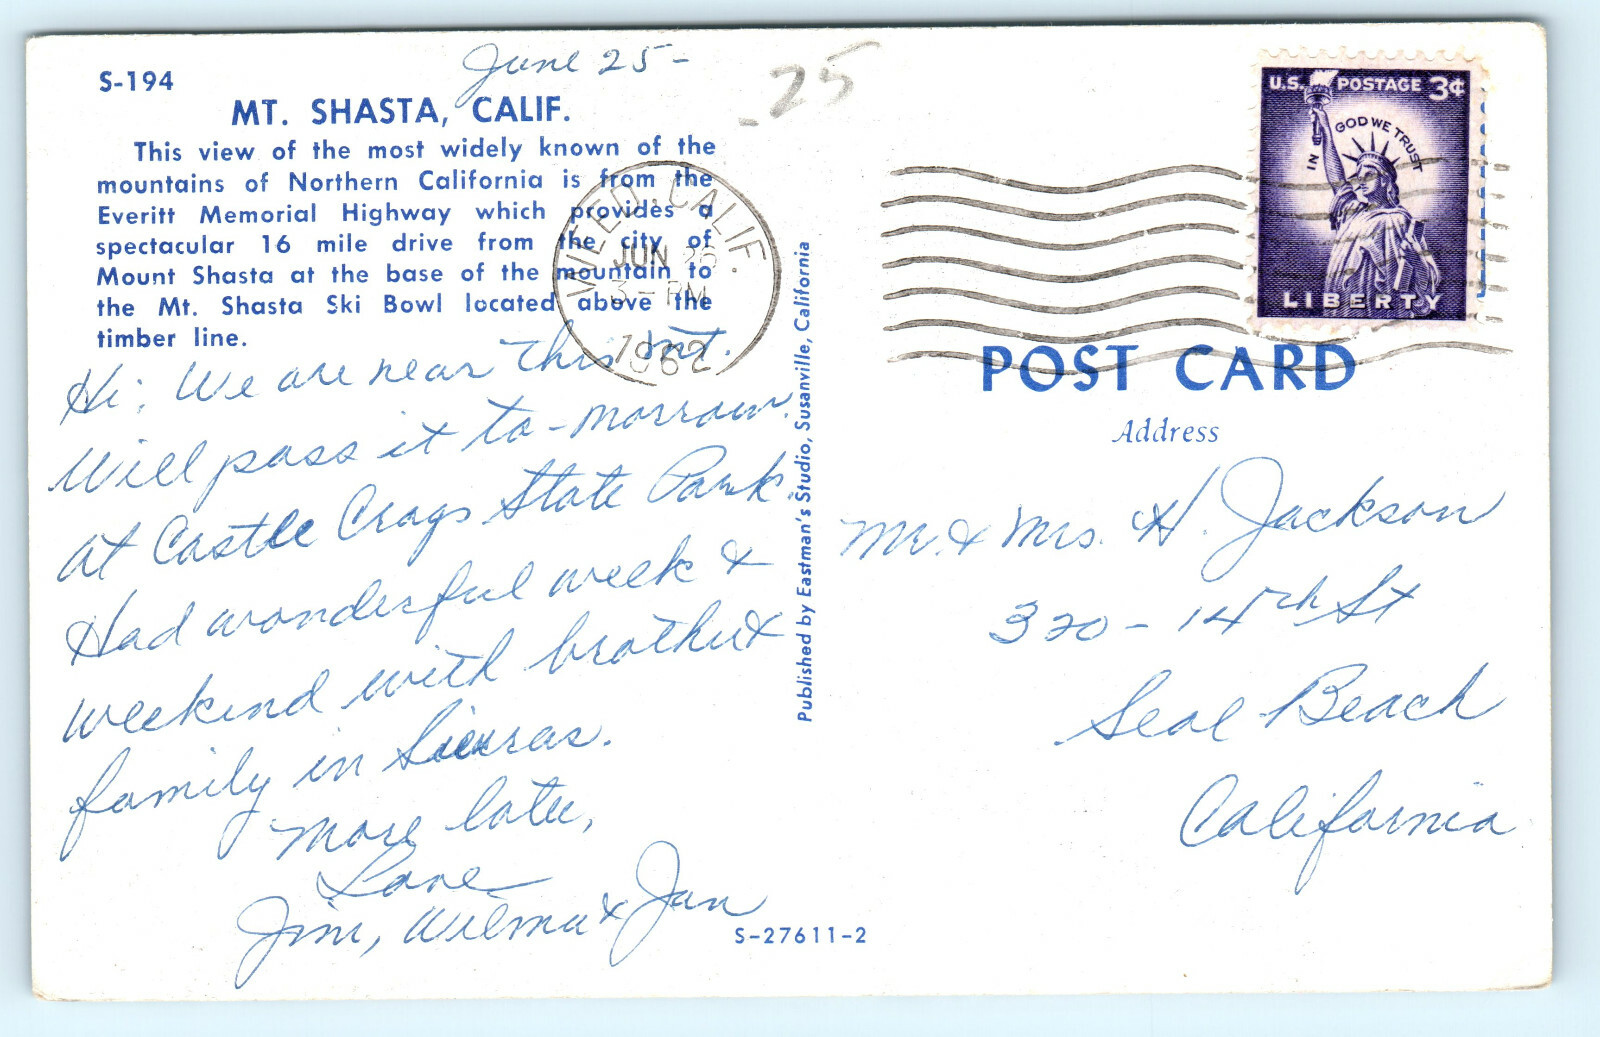 June 25-
.25
S-194
MT. SHASTA, CALIF.
This view of the most widely known of the
mountains of Northern California is from the
Everitt Memorial Highway which provides a
spectacular 16 mile drive from the city of
Mount Shasta at the base of the mountain to
the Mt. Shasta Ski Bowl located above the
timber line.
Hi; We are near this mt.
Will pass it to-morrow.
at Castle Crags State Park.
Had wonderful week &
weekend with brother &
family in Sierras.
More later,
Love
Jim, Wilma & Jan
S-27611-2
Published by Eastman's Studio, Susanville, California
WEED, CALIF.
JUN 26
3-PM
1962
U.S. POSTAGE 3¢
IN GOD WE TRUST
LIBERTY
POST CARD
Address
Mr. & Mrs. H. Jackson
320-14th St
Seal Beach
California